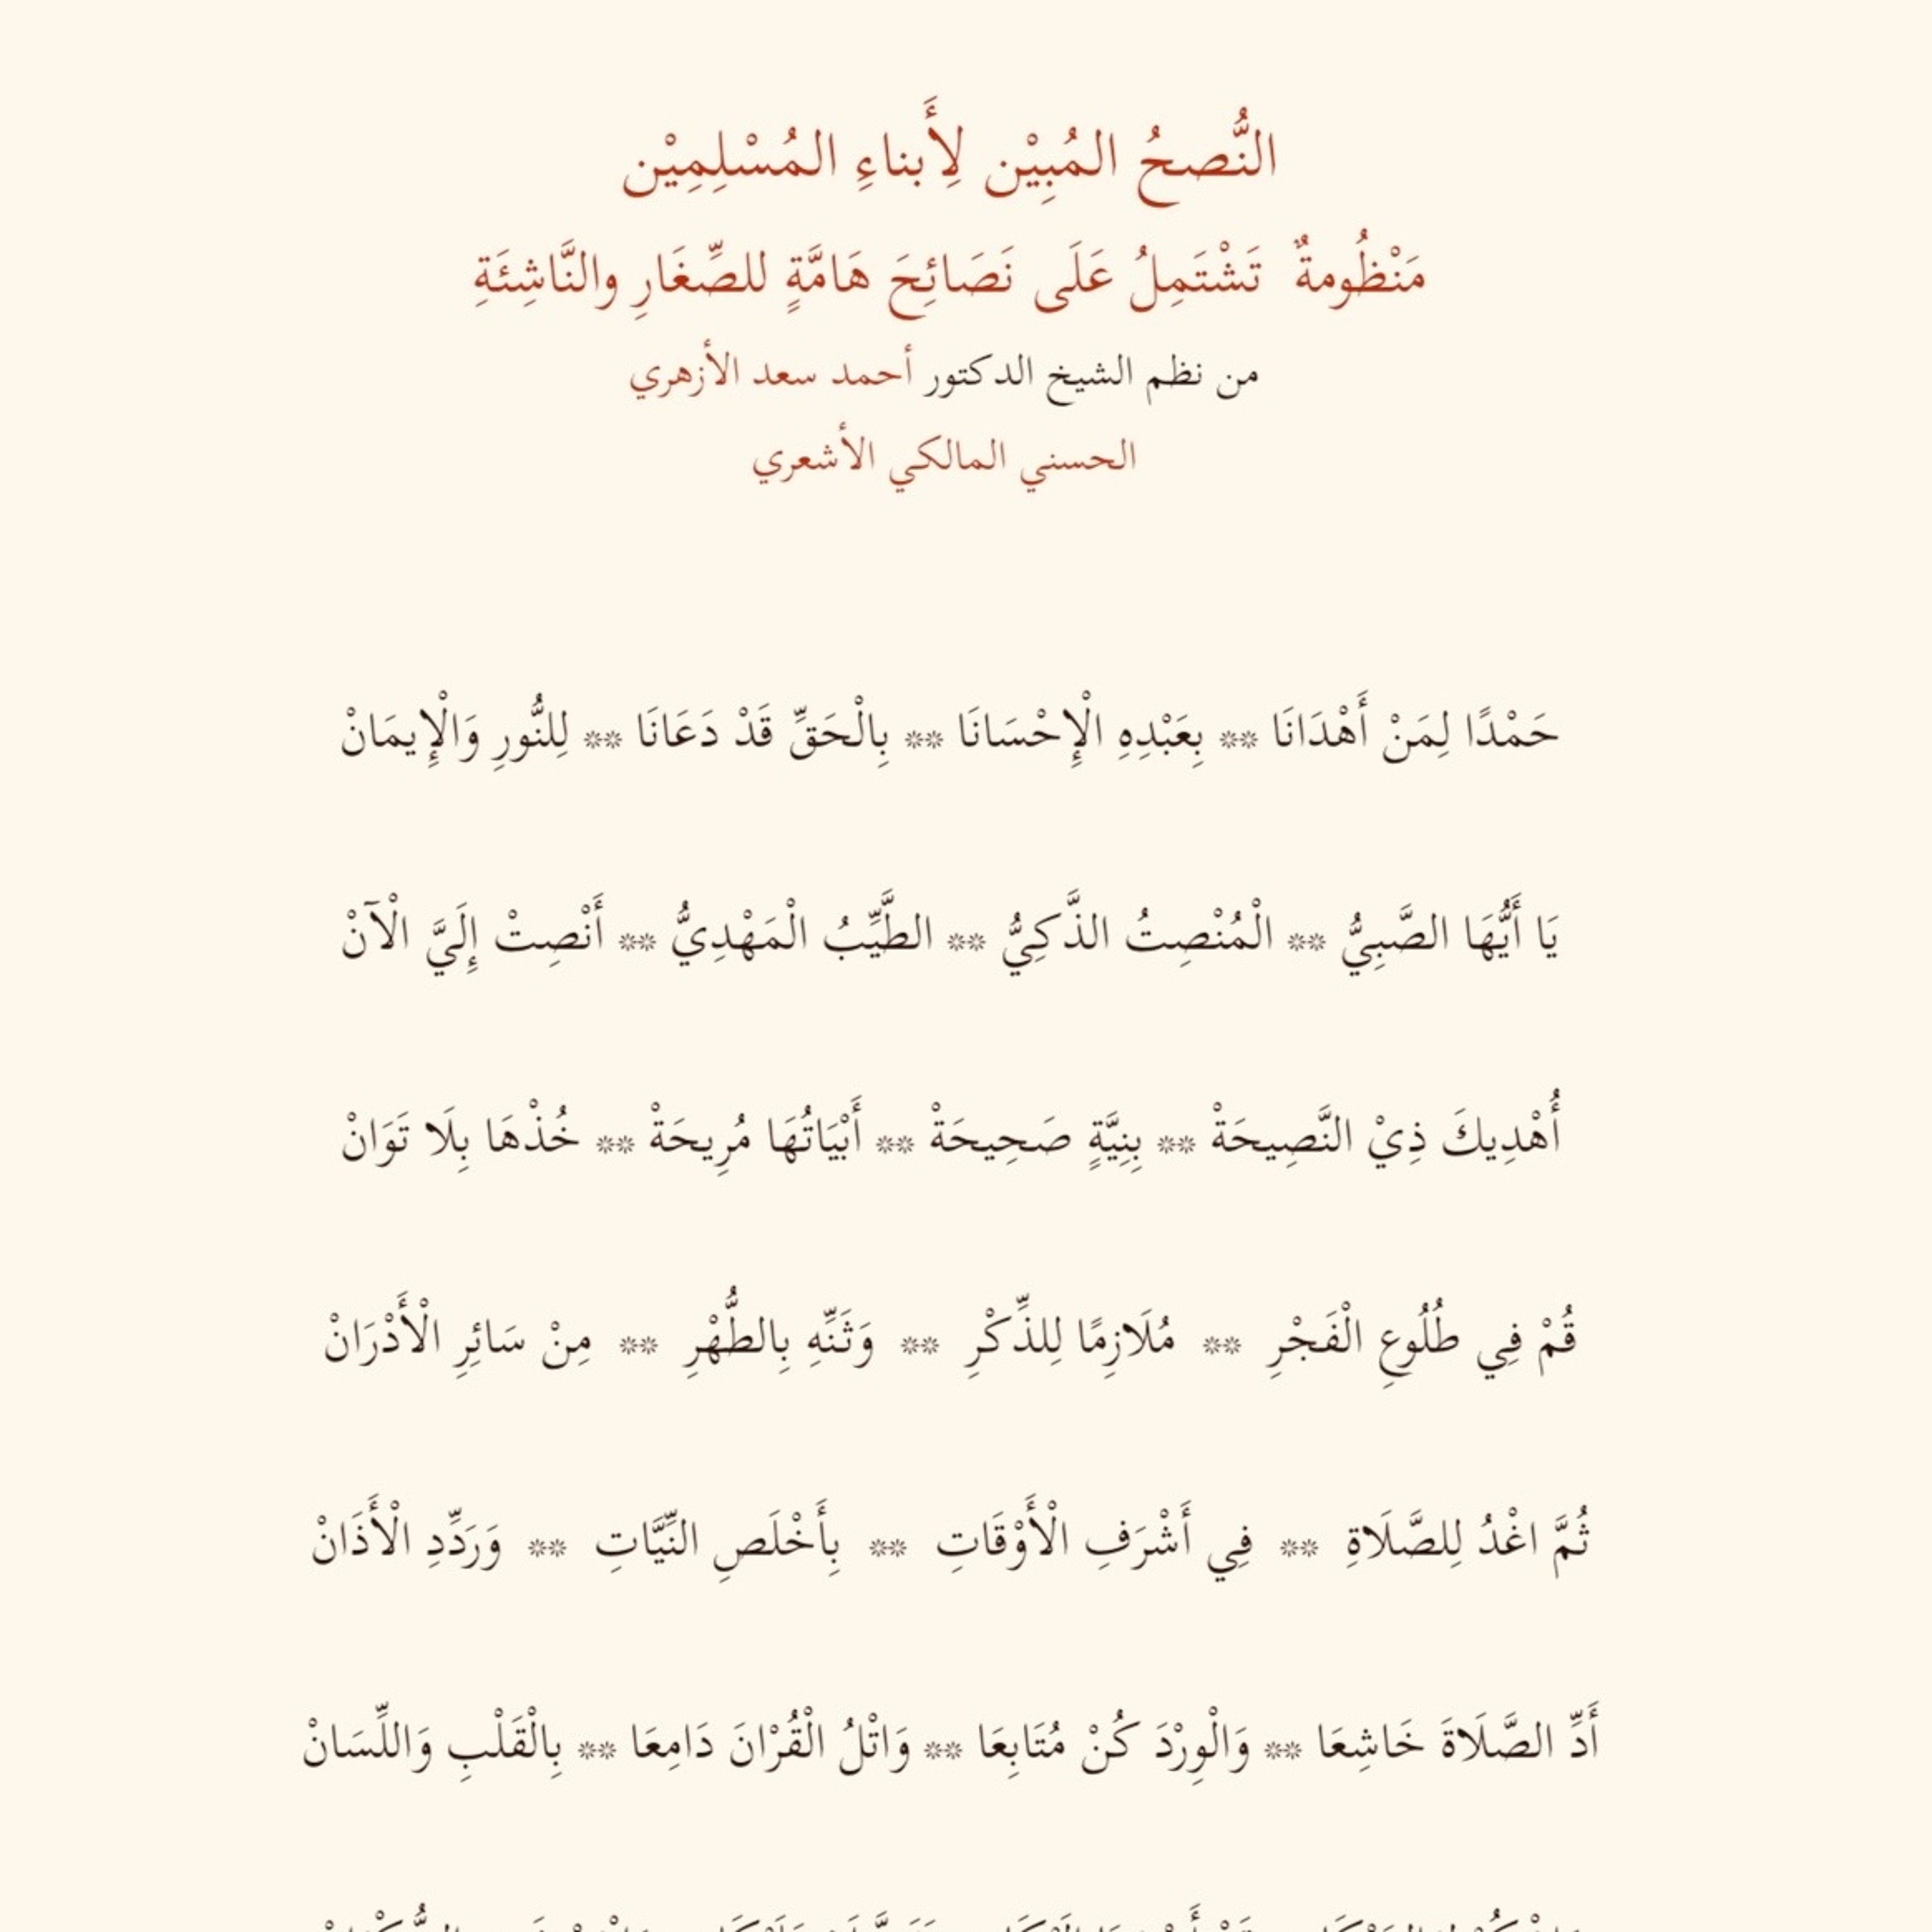 النُّصحُ المُبِيْن لِأَبناءِ المُسْلِمِيْن
مَنْظُومةٌ تَشْتَمِلُ عَلَى نَصَائِحَ هَامَّةٍ للصِّغَارِ والنَّاشِئَةِ
من نظم الشيخ الدكتور أحمد سعد الأزهري
الحسني المالكي الأشعري
حَمْدًا لِمَنْ أَهْدَانَا ** بِعَبْدِهِ الْإِحْسَانَا ** بِالْحَقِّ قَدْ دَعَانَا ** لِلنُّورِ وَالْإِيمَانْ
يَا أَيُّهَا الصَّبِيُّ ** الْمُنْصِتُ الذَّكِيُّ ** الطَّيِّبُ الْمَهْدِيُّ ** أَنْصِتْ إِلَيَّ الْآنْ
أُهْدِيكَ ذِيْ النَّصِيحَةْ ** بِنِيَّةٍ صَحِيحَةْ ** أَبْيَاتُهَا مُرِيحَةْ ** خُذْهَا بِلَا تَوَانْ
قُمْ فِي طُلُوعِ الْفَجْرِ ** مُلَازِمًا لِلذِّكْرِ ** وَثَنِّهِ بِالطُّهْرِ ** مِنْ سَائِرِ الْأَدْرَانْ
ثُمَّ اغْدُ لِلصَّلَاةِ ** فِي أَشْرَفِ الْأَوْقَاتِ ** بِأَخْلَصِ النِّيَّاتِ ** وَرَدِّدِ الْأَذَانْ
أَدِّ الصَّلَاةَ خَاشِعَا ** وَالْوِرْدَ كُنْ مُتَابِعَا ** وَاتْلُ الْقُرْانَ دَامِعَا ** بِالْقَلْبِ وَاللِّسَانْ